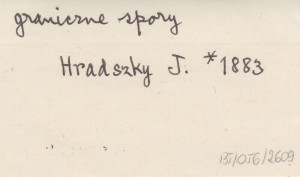 graniczne spory
Hradszky J. *1883
BT/OTG/2609